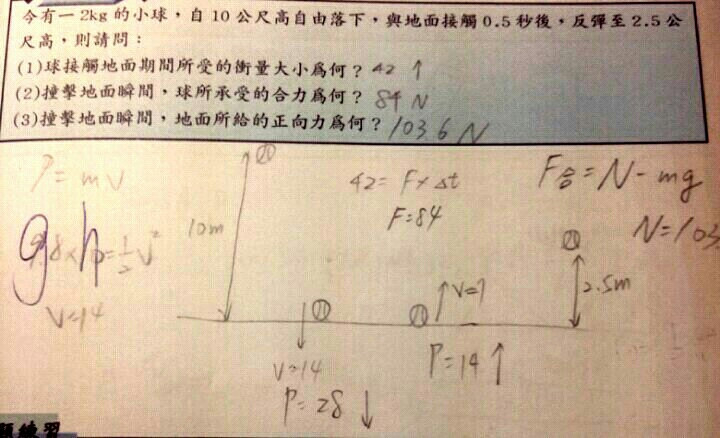 今有一 2kg 的小球，自 10 公尺高自由落下，與地面接觸 0.5 秒後，反彈至 2.5 公
尺高，則請問：
(1)球接觸地面期間所受的衝量大小為何？ 42 ↑
(2)撞擊地面瞬間，球所承受的合力為何？ 84 N
(3)撞擊地面瞬間，地面所給的正向力為何？ 103.6 N
P = mv
42 = F × Δt
F合 = N - mg
F=84
N=103
10m
gh = ½v²
V=14
V=7
2.5m
V=14
P=14 ↑
P=28 ↓
題練習